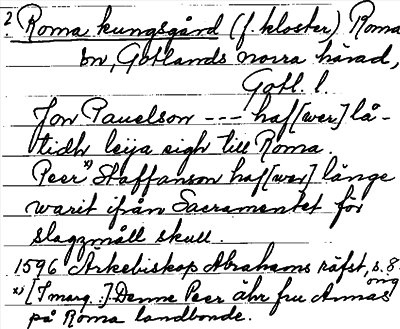 2. Roma kungsgård (f. kloster) Roma
sn, Gotlands norra härad,
Gotl. l.
Jon Pauelson --- haf[wer] lå-
tidh leija sigh till Roma.
Peer x) Staffanson haf[wer] länge
warit ifrån Sacramentet för
slagzmåll skull.
1596 Ärkebiskop Abrahams räfst, s. 8.
x) [I marg.:] Denne Peer ähr fru Annas
på Roma landbonde.